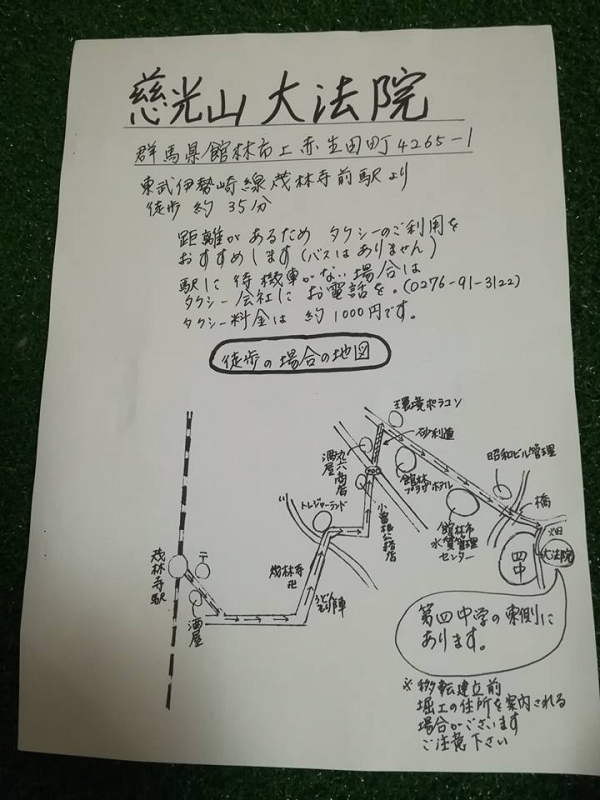 慈光山 大法院
群馬県館林市上赤生田町4265-1
東武伊勢崎線茂林寺前駅より
徒歩 約 35分
距離があるため タクシーのご利用を
おすすめします(バスはありません)
駅に待機車がない場合は
タクシー会社に お電話を。(0276-91-3122)
タクシー料金は 約1000円です。
徒歩の場合の地図
環境ポラコン
砂利道
酒屋
商店
館林
プラザホテル
昭和ビル管理
橋
トレジャーランド
小曽根公務店
館林市
水質管理
センター
畑
大法院
四中
茂林寺駅
〒
茂林寺
卍
酒屋
第四中学の東側に
あります。
※移転建立前
堀工の住所を案内される
場合がございます
ご注意下さい